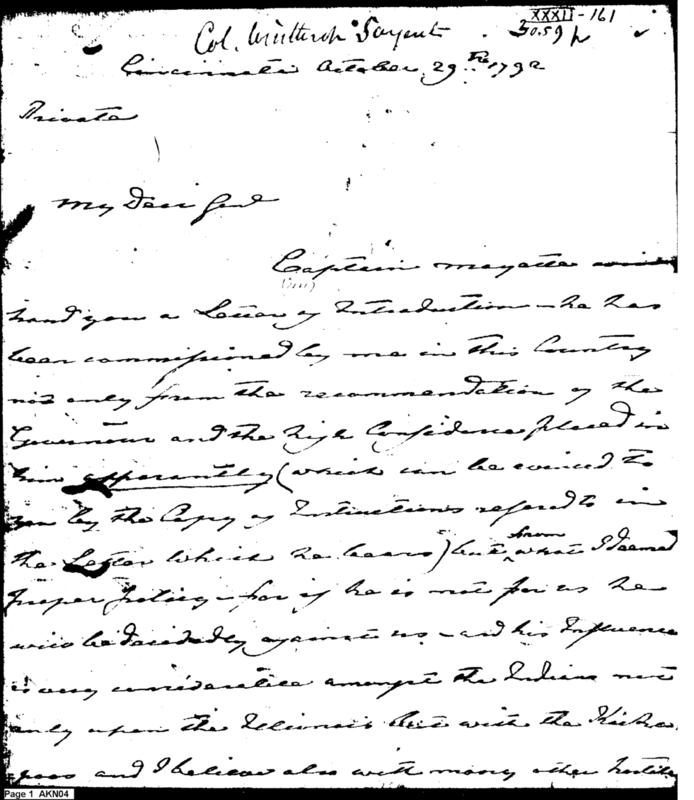 XXXII - 161
Col. Winthrop Sargent
30.59
Cincinnati October 29th 1792
Private
My Dear Genl
Captain Mayatte will
hand you a Letter of Introduction - he has
been commissioned by me in this Country
not only from the recommendation of the
Governour and the high Confidence placed in
him apparantly (which can be evinced to
you by the Copy of Instructions refered to in
the Letter which he bears) but from what I deemed
proper policy - for if he is not for us he
will be decidedly against us - and his Influence
is very considerable amongst the Indians not
only upon the Illinois but with the Kicka
poos and I believe also with many other hostile
Page 1 AKN04